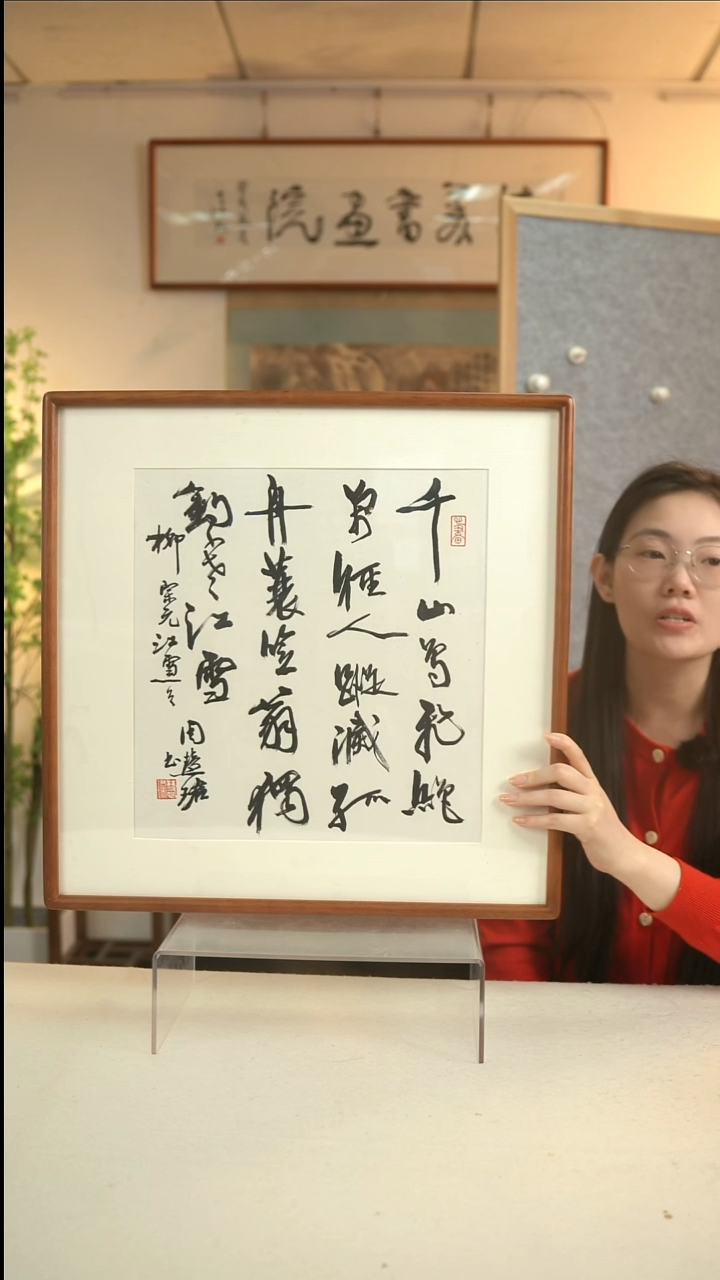 院畫書美
千山鳥飛絕
萬徑人蹤滅孤
舟蓑笠翁獨
釣寒江雪
柳宗元江雪
周慧珺书